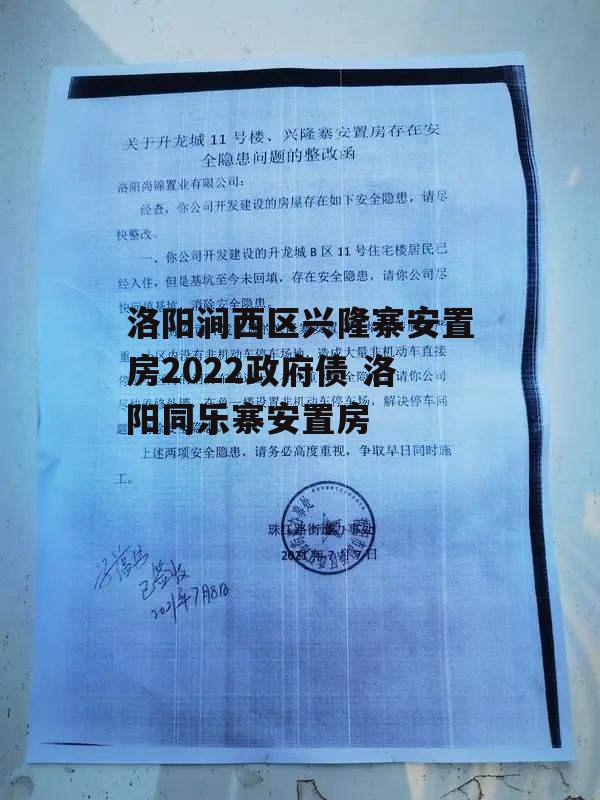 关于升龙城 11 号楼、兴隆寨安置房存在安
全隐患问题的整改函
洛阳尚锦置业有限公司:
经查，你公司开发建设的房屋存在如下安全隐患，请尽
快整改。
一、你公司开发建设的升龙城 B 区 11 号住宅楼居民已
经入住，但是基坑至今未回填，存在安全隐患，请你公司尽
快回填基坑，消除安全隐患。
洛阳涧西区兴隆寨安置
小区内没有非机动车停车场地，造成大量非机动车直接
房2022政府债 洛
请你公司
阳同乐寨安置房
一楼设置非机动车停车场，解决停车问
题
上述两项安全隐患，请务必高度重视，争取早日同时施
工。
珠江路街道办事处
2021 年 7 月 7 日
已签收
2021年7月8日